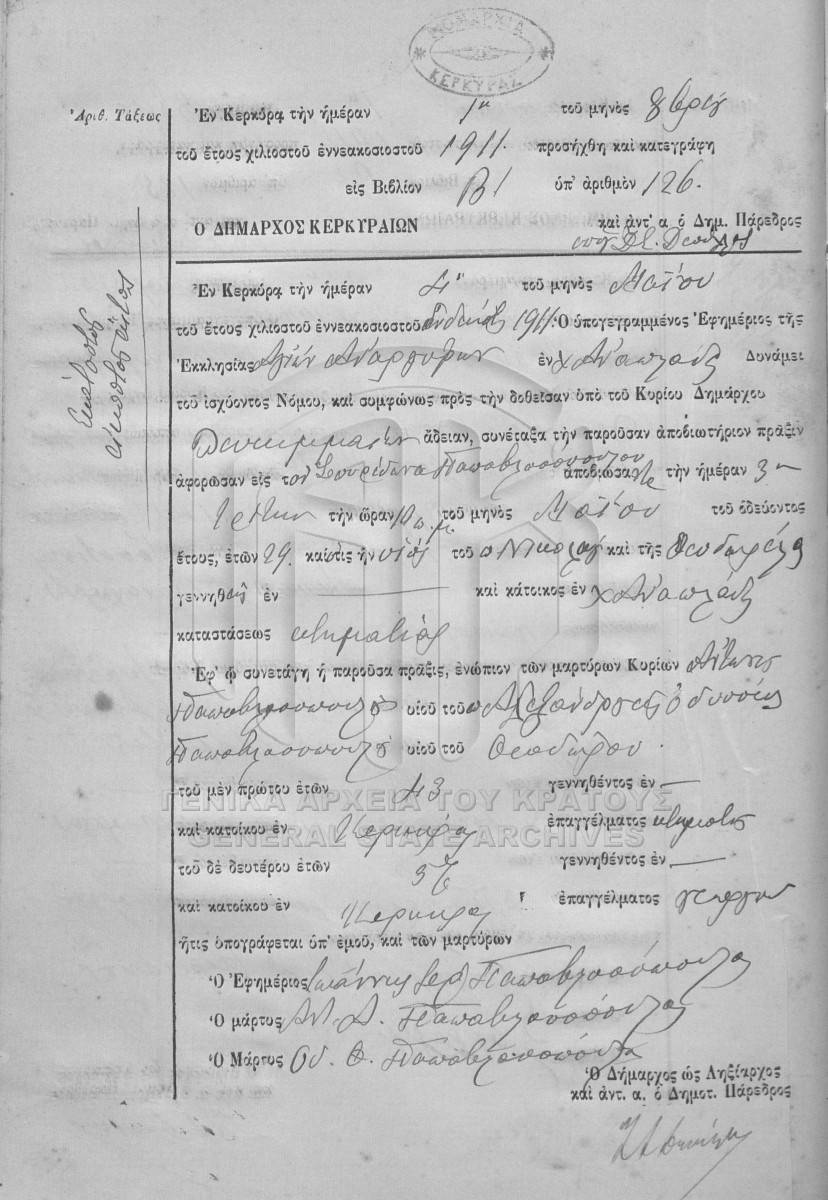 ΝΟΜΑΡΧΙΑ
ΚΕΡΚΥΡΑΣ
Ἀριθ. Τάξεως
Ἐν Κερκύρᾳ τὴν ἡμέραν 1η τοῦ μηνὸς 8βρίου
τοῦ ἔτους χιλιοστοῦ ἐννεακοσιοστοῦ 1911. προσήχθη καὶ κατεγράφη
εἰς Βιβλίον Β1 ὑπ' ἀριθμὸν 126.
Ο ΔΗΜΑΡΧΟΣ ΚΕΡΚΥΡΑΙΩΝ καὶ ἀντ' α ὁ Δημ. Πάρεδρος
Ἑκατοστὸς
εἰκοστὸς ἕκτος
Ἐν Κερκύρᾳ τὴν ἡμέραν 4η τοῦ μηνὸς Μαΐου
τοῦ ἔτους χιλιοστοῦ ἐννεακοσιοστοῦ ἑνδεκάτου 1911 Ὁ ὑπογεγραμμένος Ἐφημέριος τῆς
Ἐκκλησίας Ἁγίων Ἀναργύρων ἐν χ. Ἀναπλάδες Δυνάμει
τοῦ ἰσχύοντος Νόμου, καὶ συμφώνως πρὸς τὴν δοθεῖσαν ὑπὸ τοῦ Κυρίου Δημάρχου
ἄδειαν, συνέταξα τὴν παροῦσαν ἀποβιωτήριον πρᾶξιν
ἀφορῶσαν εἰς τὸν Σπυρίδωνα Παπαβλασόπουλον ἀποβιώσαντα τὴν ἡμέραν 3η
Τρίτην τὴν ὥραν 10 π.μ. τοῦ μηνὸς Μαΐου τοῦ ὁδεύοντος
ἔτους, ἐτῶν 29. καὶ τις ἦν υἱὸς τοῦ π Νικολάου καὶ τῆς Θεοδωρέλας
γεννηθεὶς ἐν — καὶ κάτοικος ἐν χ. Ἀναπλάδες
καταστάσεως κτηματίας
Ἐφ' ᾧ συνετάγη ἡ παροῦσα πρᾶξις, ἐνώπιον τῶν μαρτύρων Κυρίων Ἀντώνιος
Παπαβλασόπουλος υἱοῦ τοῦ π Ἀλεξάνδρου καὶ Ὀδυσσέως
Παπαβλασόπουλος υἱοῦ τοῦ Θεοδώρου.
τοῦ μὲν πρώτου ἐτῶν 43 γεννηθέντος ἐν —
ΓΕΝΙΚΑ ΑΡΧΕΙΑ ΤΟΥ ΚΡΑΤΟΥΣ
καὶ κατοίκου ἐν Κερκύρᾳ ἐπαγγέλματος κτηματίας
GENERAL STATE ARCHIVES
τοῦ δὲ δευτέρου ἐτῶν γεννηθέντος ἐν —
καὶ κατοίκου ἐν Κερκύρᾳ ἐπαγγέλματος γεωργοῦ
ἥτις ὑπογράφεται ὑπ' ἐμοῦ, καὶ τῶν μαρτύρων
Ὁ Ἐφημέριος Ἰωάννης Ἱερ. Παπαβλασόπουλος
Ὁ μάρτυς Ἀντ. Ἀ. Παπαβλασόπουλος
Ὁ Μάρτυς Ὀδ. Θ. Παπαβλασόπουλος
Ὁ Δήμαρχος ὡς Ληξίαρχος
καὶ ἀντ. α. ὁ Δημοτ. Πάρεδρος